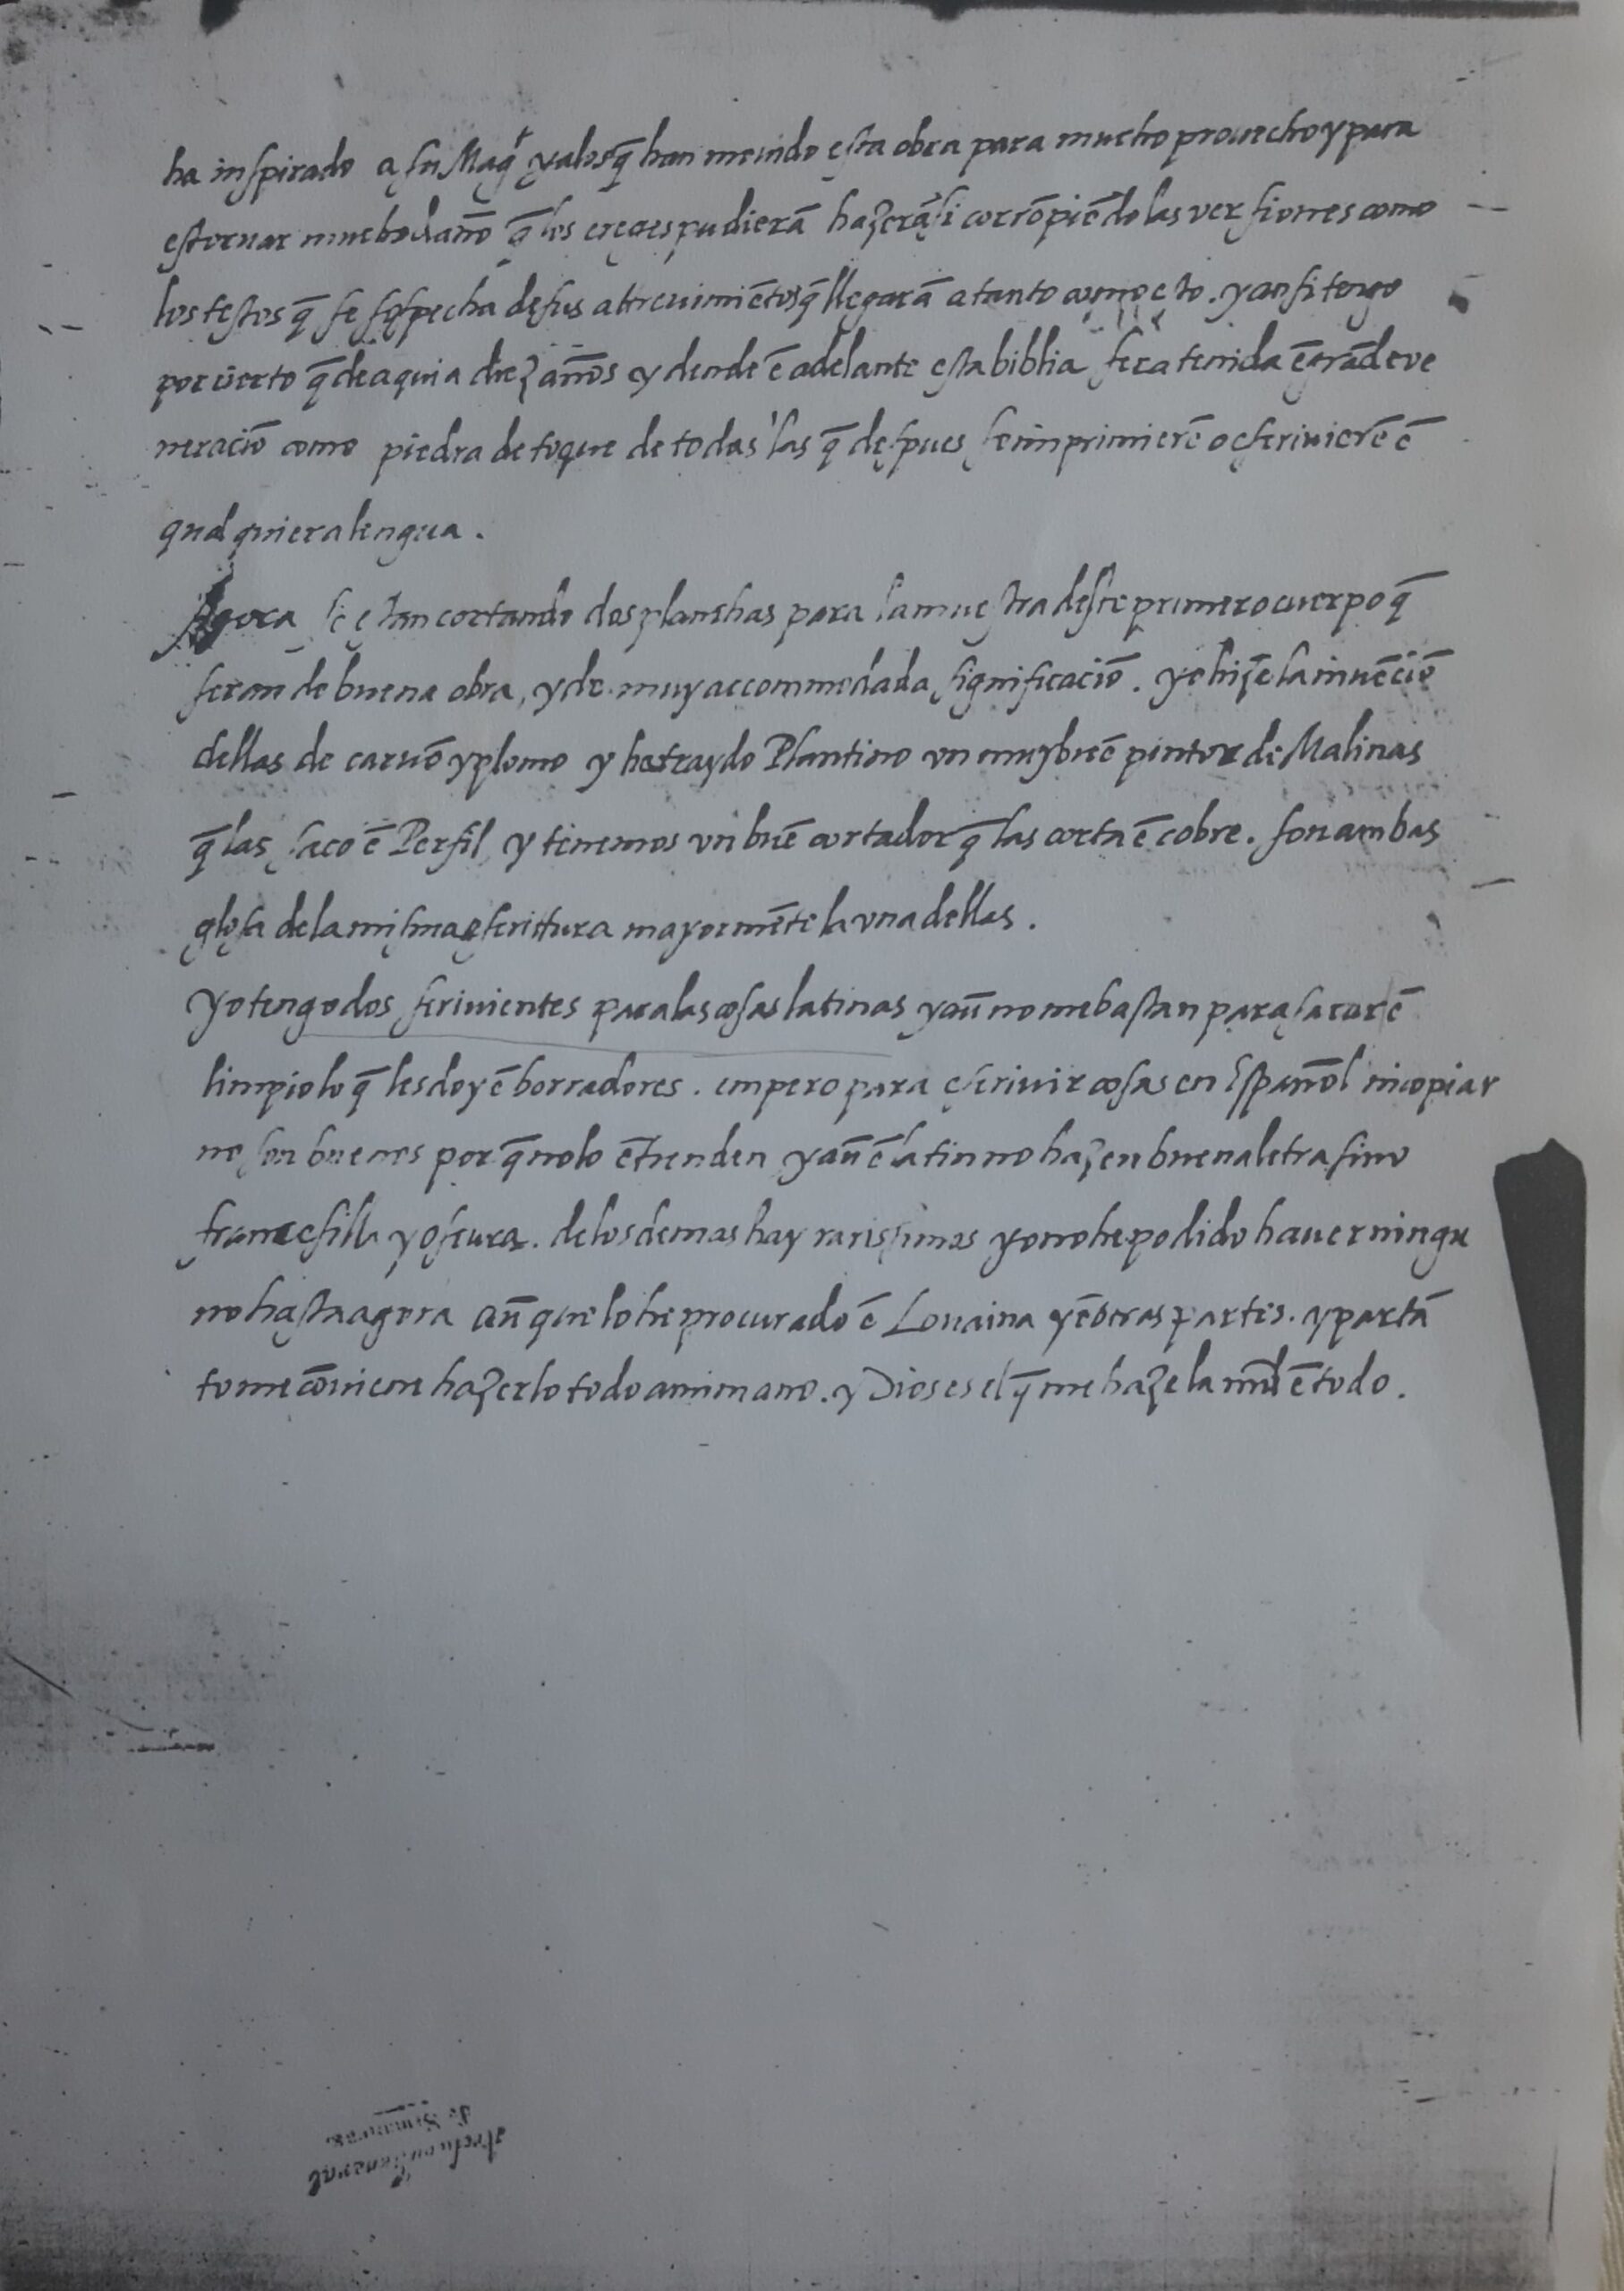 ha inspirado a su Mag.t y a los q̃ han movido esta obra para mucho provecho y para
estorvar mucho daño q̃ los ereges pudierã hazer ãsi corrõpiẽdo las versiones como
los testos q̃ se sospecha de sus attrevimiẽtos q̃ llegarã a tanto como esto. y ansi tengo
por cierto q̃ de aqui a diez años y dende ẽ adelante esta biblia sera tenida ẽ grãde ve
neraciõ como piedra de toque de todas las q̃ despues se imprimierẽ o escrivierẽ ẽ
qual quiera lengua.
Agora se estan cortando dos planchas para la muestra deste primero cuerpo q̃
seran de buena obra, y de muy accommodada significaciõ. yo hize la invẽciõ
dellas de carvõ y plomo y ha traydo Plantino un muy buẽ pintor de Malinas
q̃ las saco ẽ Perfil y tenemos un buẽ cortador q̃ las corta ẽ cobre. son ambas
glosa de la misma escrittura mayormẽte la una dellas.
Yo tengo dos scrivientes para las cosas latinas y aũ no me bastan para sacar ẽ
limpio lo q̃ les doy ẽ borradores. empero para escrivir cosas en Español ni copiar
no son buenos por q̃ no lo ẽtienden y aũ ẽ latin no hazen buena letra sino
francesilla y oscura. de los demas hay rarissimos yo no he podido haver ningu
no hasta agora aũ que lo he procurado ẽ Lovaina y ẽ otras partes. y por tã
to me cõviene hazerlo todo a mi mano. y Dios es el q̃ me haze la md ẽ todo.
Archivo General
de Simancas